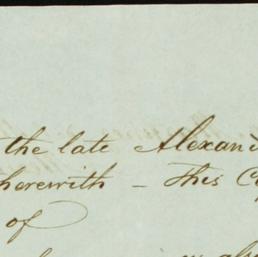 the late Alexand
herewith – This C
of
also